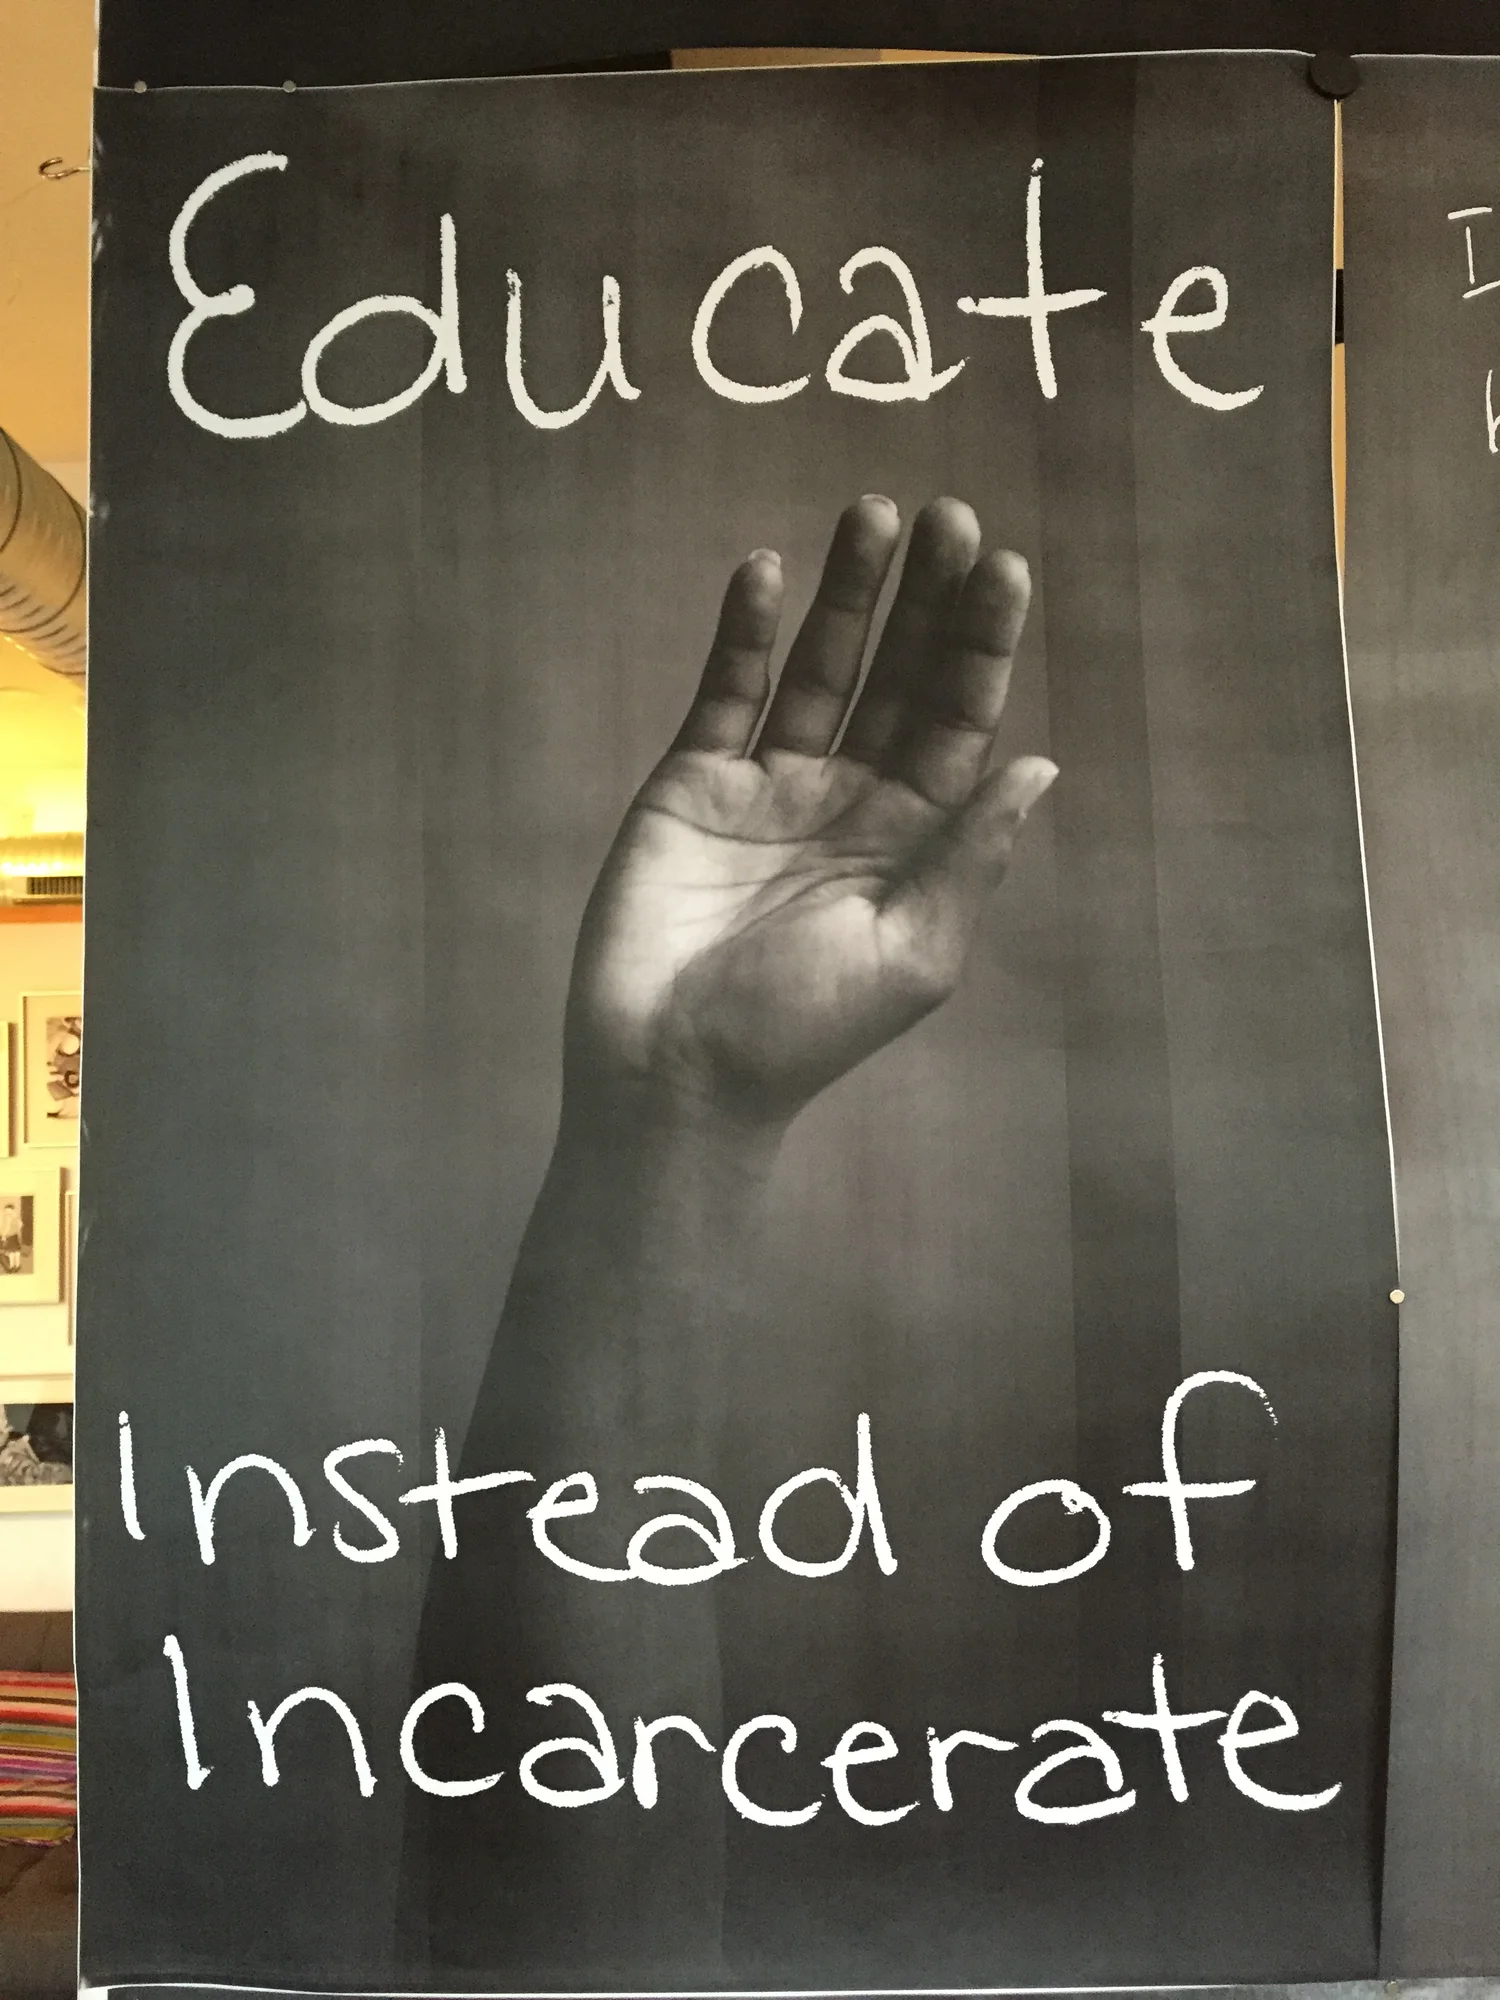 Educate
Instead of
Incarcerate
I